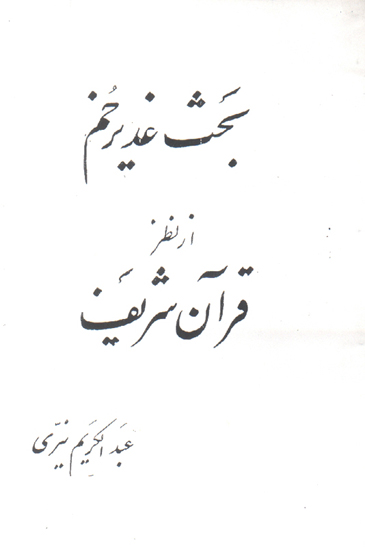 بَحث غدیر خُم
از نظر
قرآن شریف
عبدالکریم نیّری